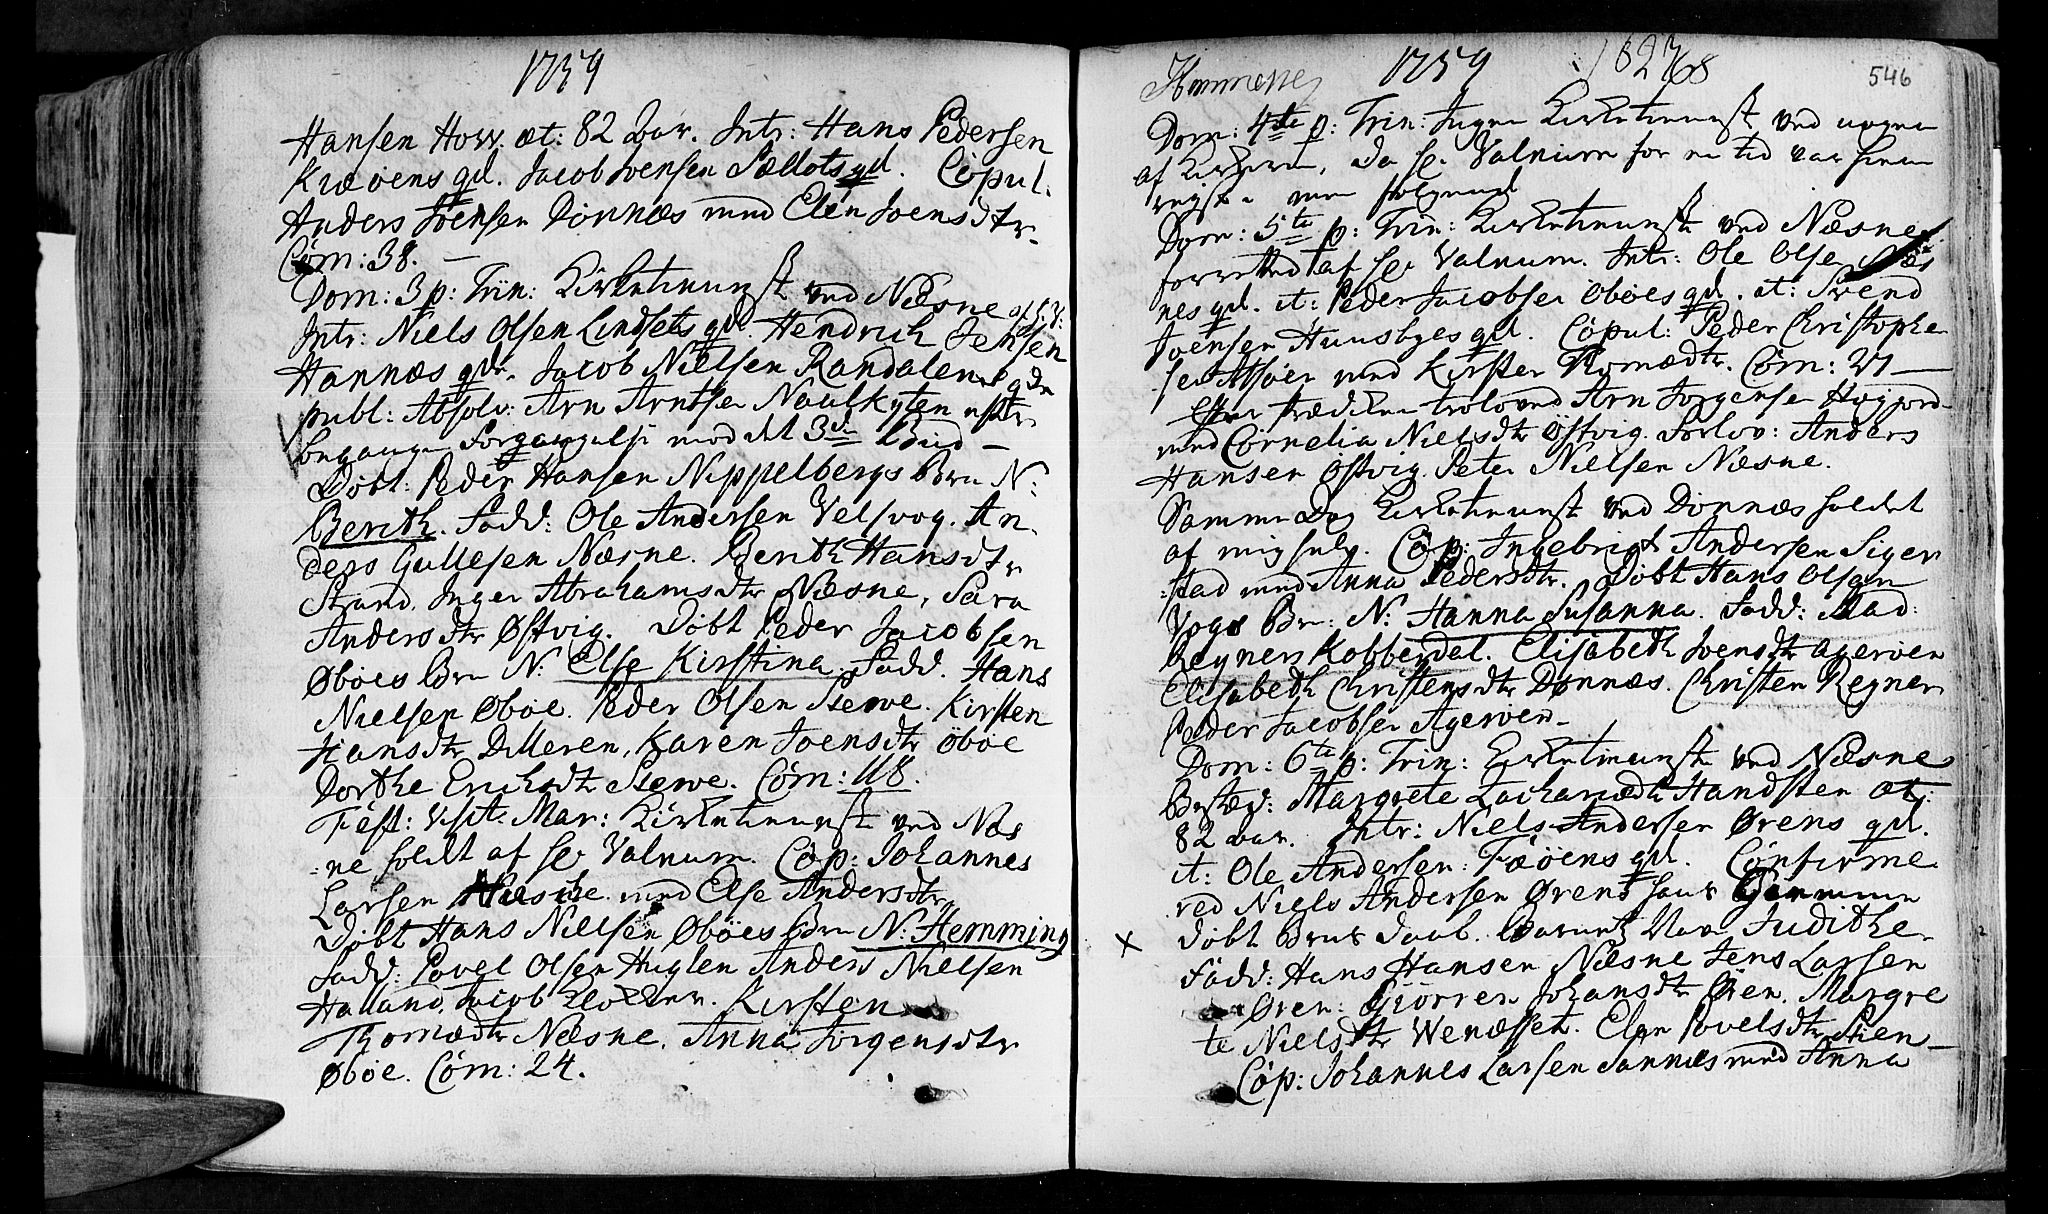 1759
Hansen How. æt: 82 Aar. Intr: Hans Pedersen
Kiæøens qd. Jacob Joensen Sællots qd. Copul.
Anders Joensen Dønnæs med Elen Joensdtr.
Com: 38. —
Dom: 3 p: Trin: Kirketieneste ved Næsne af S: V:
Intr: Niels Olsen Lindsets qd. Hendrich Jensen
Hannæs qd. Jacob Nielsen Randalens qde
publ: Absolv: Arn Arntsen Naulkyten efter
begangen Forgangelse mod det 3die Bud —
Døbt: Peder Hansen Nippelbergs Barn N:
Berith. Fadd: Ole Andersen Velsvog. An
ders Gullesen Næsne. Berith Hansdtr
Strand. Inger Abrahamsdtr Næsne, Sara
Andersdtr Østvig. Døbt Peder Jacobsen
Øbøes Barn N: Else Kirstina. Fadd. Hans
Nielsen Øbøe. Peder Olsen Stewe. Kirsten
Hansdtr Dilleren, Karen Joensdtr Øbøe
Dorthe Erichsdtr Stewe. Com: 118.
Fest: Visit: Mar: Kirketieneste ved Næs
:ne holdt af Hr Valnum. Cop: Johannes
Larsen med Else Andersdtr
Døbt Hans Nielsen Øbøes Barn N: Hemming
Fadd: Povel Olsen Huglen Anders Nielsen
Halland. Jacob Klokker. Kirsten
Thomædtr Næsne. Anna Jørgensdtr
Øbøe. Com: 24.
Hemnesse 1759 1827/68 546
Dom: 4de p: Trin: Ingen Kirketieneste ved nogen
af Kirkerne, da Hr Valnum for en tid var
reyst
Dom: 5te p: Trin: Kirketieneste ved Næsne
forretted af Hr Valnum. Intr: Ole Olsen Næs
nes qd. it: Peder Jacobsen Øbøes qd. it: Svend
Joensen Huusbyes qd. Copul: Peder Christophe
sen med Kirsten Thomædtr. Com: 27 —
Efter troloved Arn Jørgensen Høgjord
med Cornelia Nielsdtr Østvig. Forlov: Anders
Hansen Østvig. Peter Nielsen Næsne.
Samme Dag Kirketieneste ved Dønnæs holdet
af mig selv. Cop: Ingebrigt Andersen Siger
:stad med Anna Pedersdtr. Døbt Hans Olsen
Vogs Barn: N: Hanna Susanna. Fadd: Mad:
Regners Kobberdel. Elisabeth Joensdtr Agerøen
Elisabeth Christensdtr Dønnæs. Christen Regner
Peder Jacobsen Agerøen.
Dom: 6te p: Trin: Kirketieneste ved Næsne
Begrav: Margrete Zachariædtr Handsten æt:
82 Aar. Intr: Niels Andersen Ørens qd.
it: Ole Andersen: Tæøens qd. Confirme
red Niels Andersen Ørens hans Hiemme
døbt Barns Daab. Barnets Nav: Judithe.
Fadd: Hans Hansen Næsne Jens Larsen
Øren: Giørren Johansdtr Øren. Margre
te Nielsdtr Wenæsset. Elen Povelsdtr Stien
Cop: Johannes Larsen Sannæs med Anna